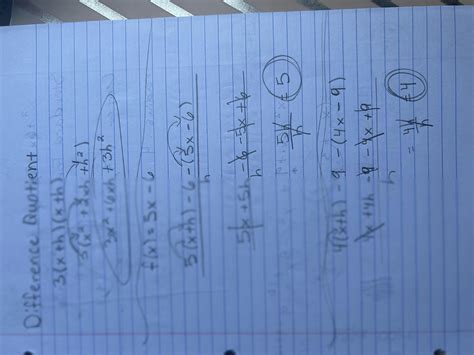 Difference Quotient
3(x+h)(x+h)
3(x²+2xh+h²)
3x²+6xh+3h²
f(x)=5x-6
5(x+h)-6-(5x-6)
h
5x+5h-6-5x+6
h
= 5h = 5
h
4(x+h)-9-(4x-9)
4x+4h-9-4x+9
h
= 4h = 4
h